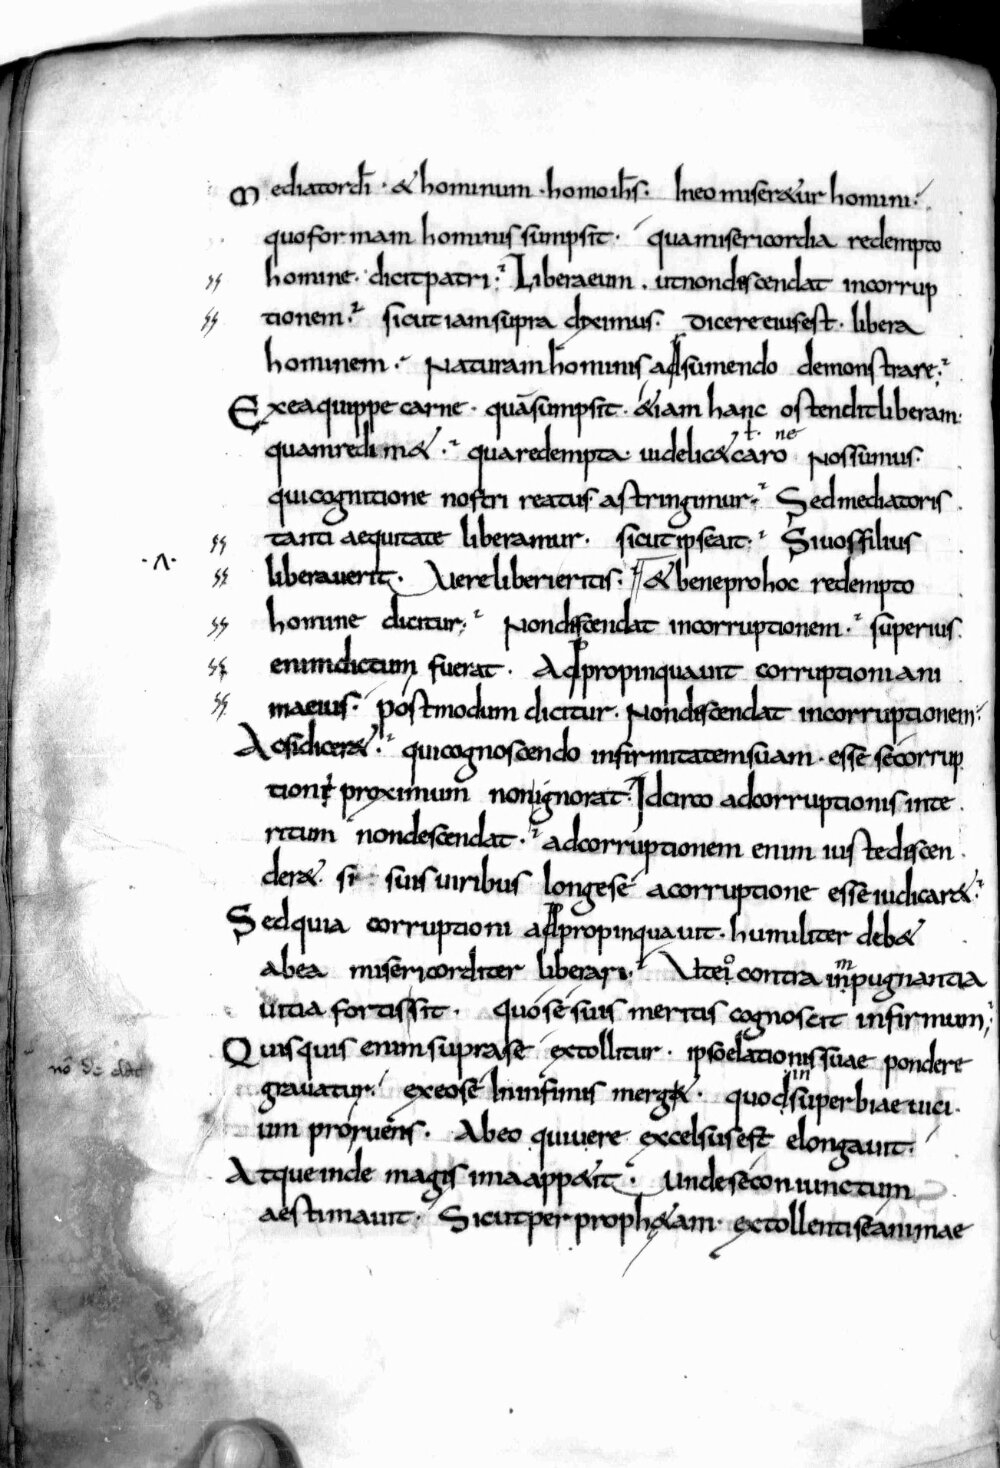 Mediator dī · & hominum · homo ih̄s · In eo miser&ur homini ·
quo formam hominis sumpsit · qua misericordia redempto
homine · dicit patri · Libera eum · ut non discendat in corrup
tionem · sicut iam supra diximus · Dicere eius est · libera
hominem · Naturam hominis adsumendo demonstrare ·
Ex ea quippe carne · quā sumpsit · & iam hanc ostendit liberam ·
quam redim& · qua redempta · uidelic& caro ł · ne Nos sumus ·
qui cognitione nostri reatus astringimur · Sed mediatoris
tanti aequitate liberamur · sicut ipse ait · Si uos filius
·Λ· liberauerit · Vere liberi eritis · & bene pro hoc redempto
homine dicitur · Non discendat in corruptionem · superius
enim dictum fuerat · Adpropinquauit corruptioni ani
ma eius · postmodum dicitur · Non discendat in corruptionem ·
Ac si dicer& · qui cognoscendo infirmitatem suam · esse se corrup
tioni proximum non ignorat · Idcirco ad corruptionis inte
ritum non descendat · ad corruptionem enim iuste discen
der& · si suis uiribus longe se a corruptione esse iudicar& ·
Sed quia corruptioni adpropinquauit · humiliter deb&
ab ea misericorditer liberari · contra inpugnantia m
uitia fortis sit · quo se suis meritis cognoscit infirmum
Quisquis enim supra se extollitur · ipso elationis suae pondere
grauatur · ex eo se In infimis merg& · quod in superbiae uici
um proruens · Ab eo qui uere excelsus est elongauit ·
Atque inde magis ima app&it · Unde se coniunctum
aestimauit · Sicut per proph&am · extollentis se animae